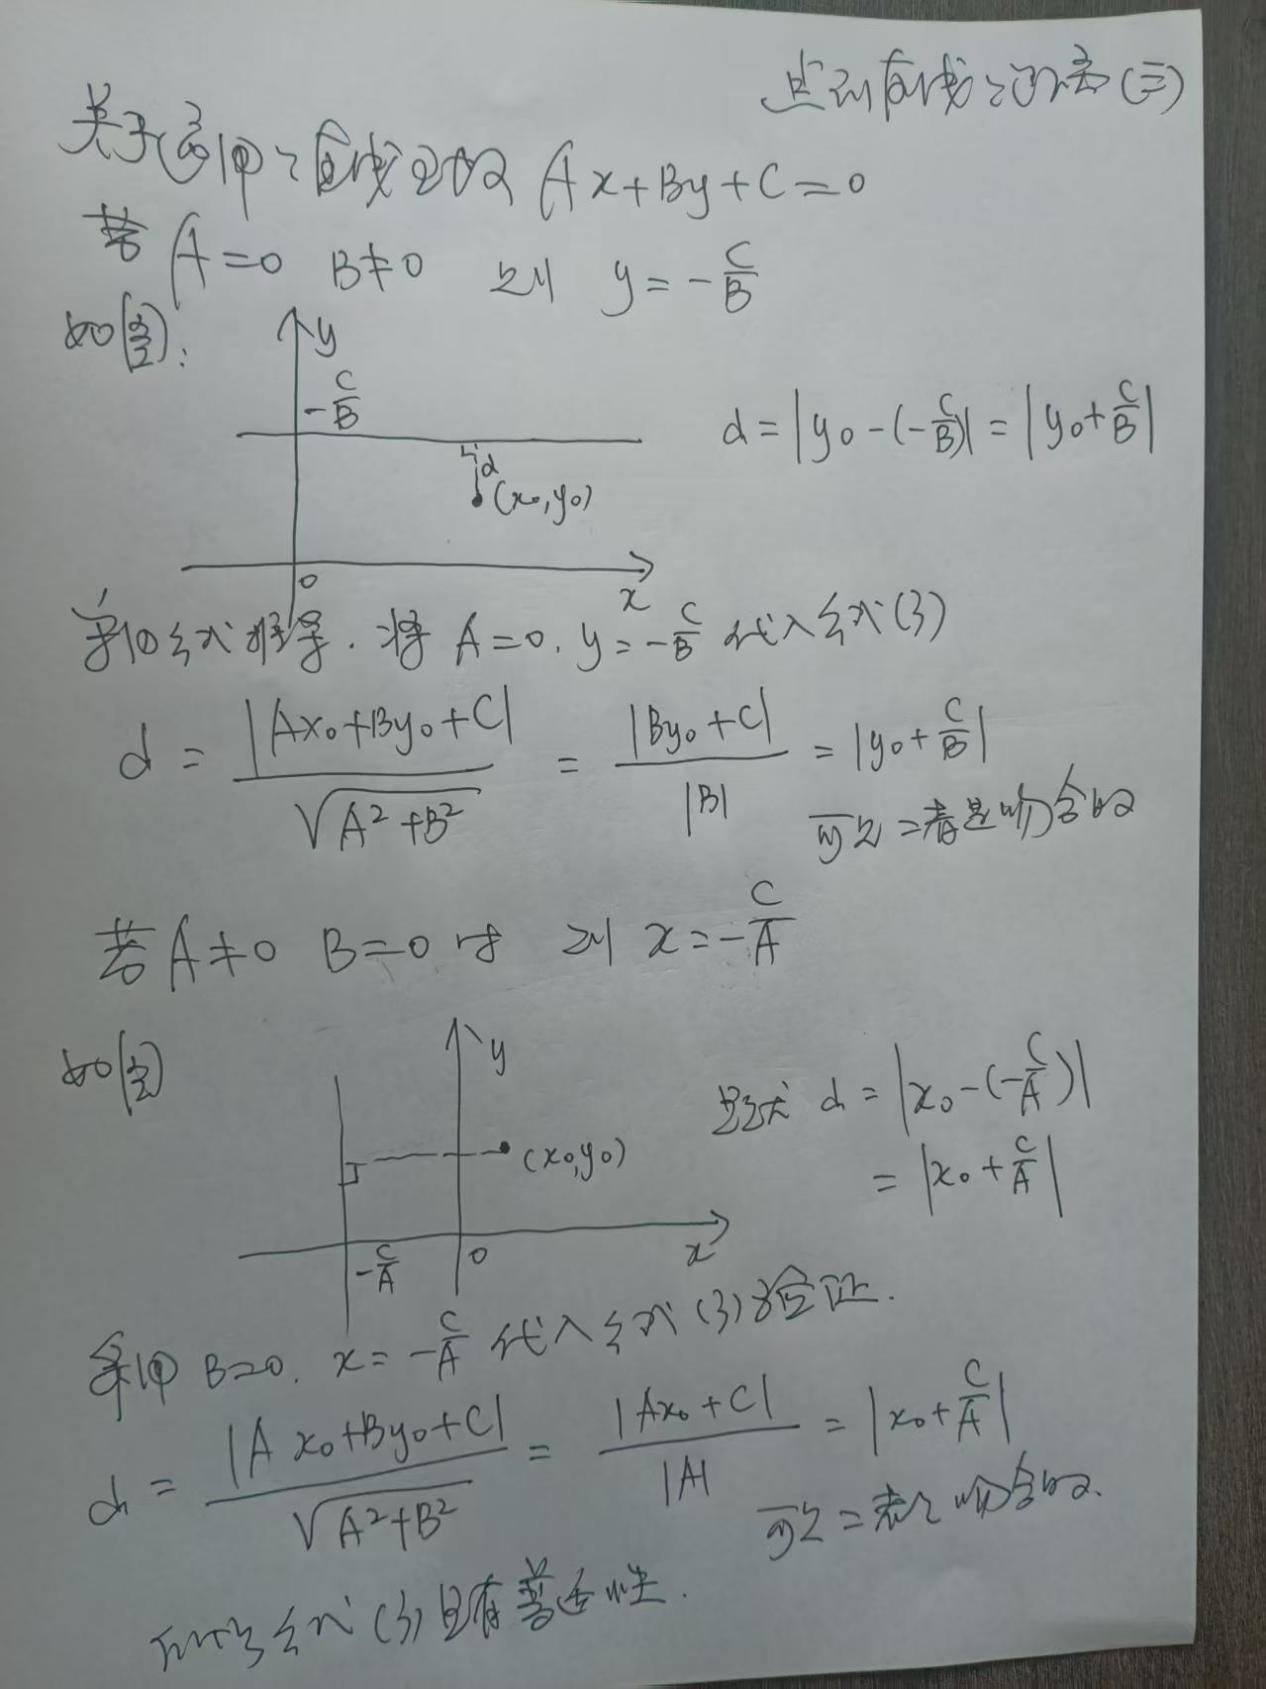 点到直线之距离(三)
关于 直线 Ax+By+C=0
若 A=0 B≠0 则 y=-C/B
如图:
y
-C/B
d=|y₀-(-C/B)|=|y₀+C/B|
d
(x₀,y₀)
0
x
公式推导.将 A=0. y=-C/B 代入公式(3)
d = |Ax₀+By₀+C|/√(A²+B²) = |By₀+C|/|B| = |y₀+C/B|
可见二者是吻合的
若 A≠0 B=0 时 则 x=-C/A
如图
y
显然 d=|x₀-(-C/A)|
(x₀,y₀)
=|x₀+C/A|
-C/A
0
x
B=0. x=-C/A 代入公式(3)验证.
d = |Ax₀+By₀+C|/√(A²+B²) = |Ax₀+C|/|A| = |x₀+C/A|
可见二者是吻合的.
所以公式(3)具有普适性.